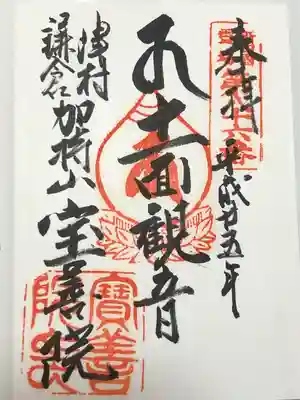 奉拝
平成廿五年
十一面観音
津村
鎌倉
加持山
宝善院
寶善院